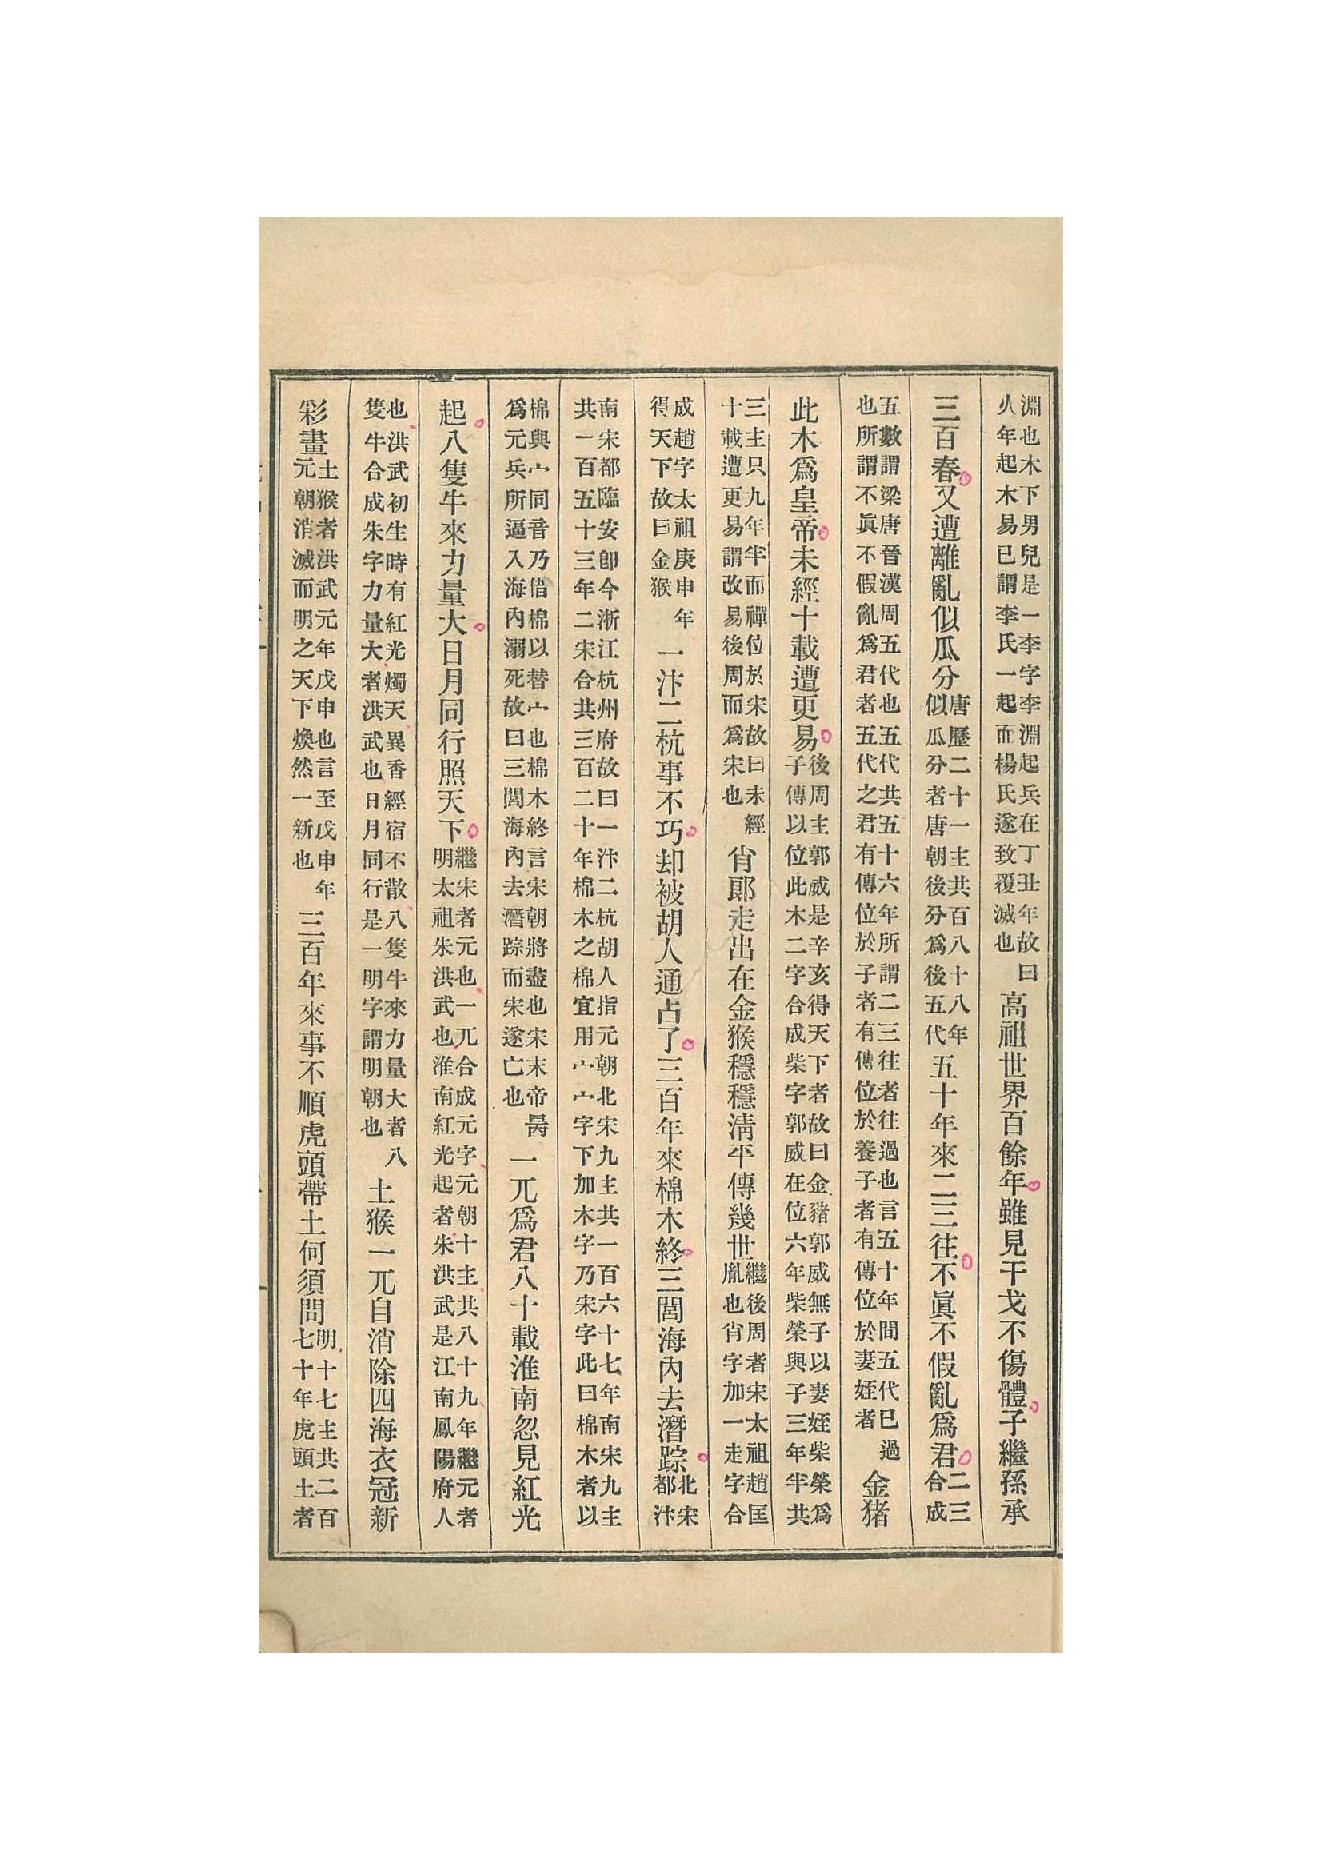 淵也木下男兒是一李字李淵起兵在丁丑年故曰火年起木易已謂李氏一起而楊氏遂致覆滅也高祖世界百餘年雖見干戈不傷體子繼孫承
三百春又遭離亂似瓜分唐歷二十一主共百八十八年似瓜分者唐朝後分爲後五代五十年來二三往不眞不假亂爲君二三合成
五數謂梁唐晉漢周五代也五代共五十六年所謂二三往者往過也言五十年間五代已過也所謂不眞不假亂爲君者五代之君有傳位於子者有傳位於養子者有傳位於妻姪者金猪
此木爲皇帝未經十載遭更易後周主郭威是辛亥得天下者故曰金豬郭威無子以妻姪柴榮爲子傳以位此木二字合成柴字郭威在位六年柴榮與子三年半共
三主只九年半而禪位於宋故曰未經十載遭更易謂改易後周而爲宋也肖郞走出在金猴穩穩淸平傳幾世繼後周者宋太祖趙匡胤也肖字加一走字合
成趙字太祖庚申年得天下故曰金猴一汴二杭事不巧却被胡人通占了三百年來棉木終三閭海內去潛踪北宋都汴
南宋都臨安卽今浙江杭州府故曰一汴二杭胡人指元朝北宋九主共一百六十七年南宋九主共一百五十三年二宋合共三百二十年棉木之棉宜用宀宀字下加木字乃宋字此曰棉木者以
棉與宀同音乃借棉以替宀也棉木終言宋朝將盡也宋末帝昺爲元兵所逼入海內溺死故曰三閭海內去潛踪而宋遂亡也一兀爲君八十載淮南忽見紅光
起八隻牛來力量大日月同行照天下繼宋者元也一兀合成元字元朝十主共八十九年繼元者明太祖朱洪武也淮南紅光起者朱洪武是江南鳳陽府人
也洪武初生時有紅光燭天異香經宿不散八隻牛來力量大者八隻牛合成朱字力量大者洪武也日月同行是一明字謂明朝也土猴一兀自消除四海衣冠新
彩畫土猴者洪武元年戊申也言至戊申年元朝消滅而明之天下煥然一新也三百年來事不順虎頭帶土何須問明十七主共二百七十年虎頭土者